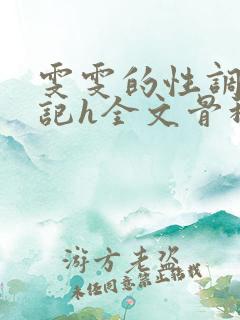 雯雯的性調
記h全文骨科
游方老盗
未经同意禁止转载